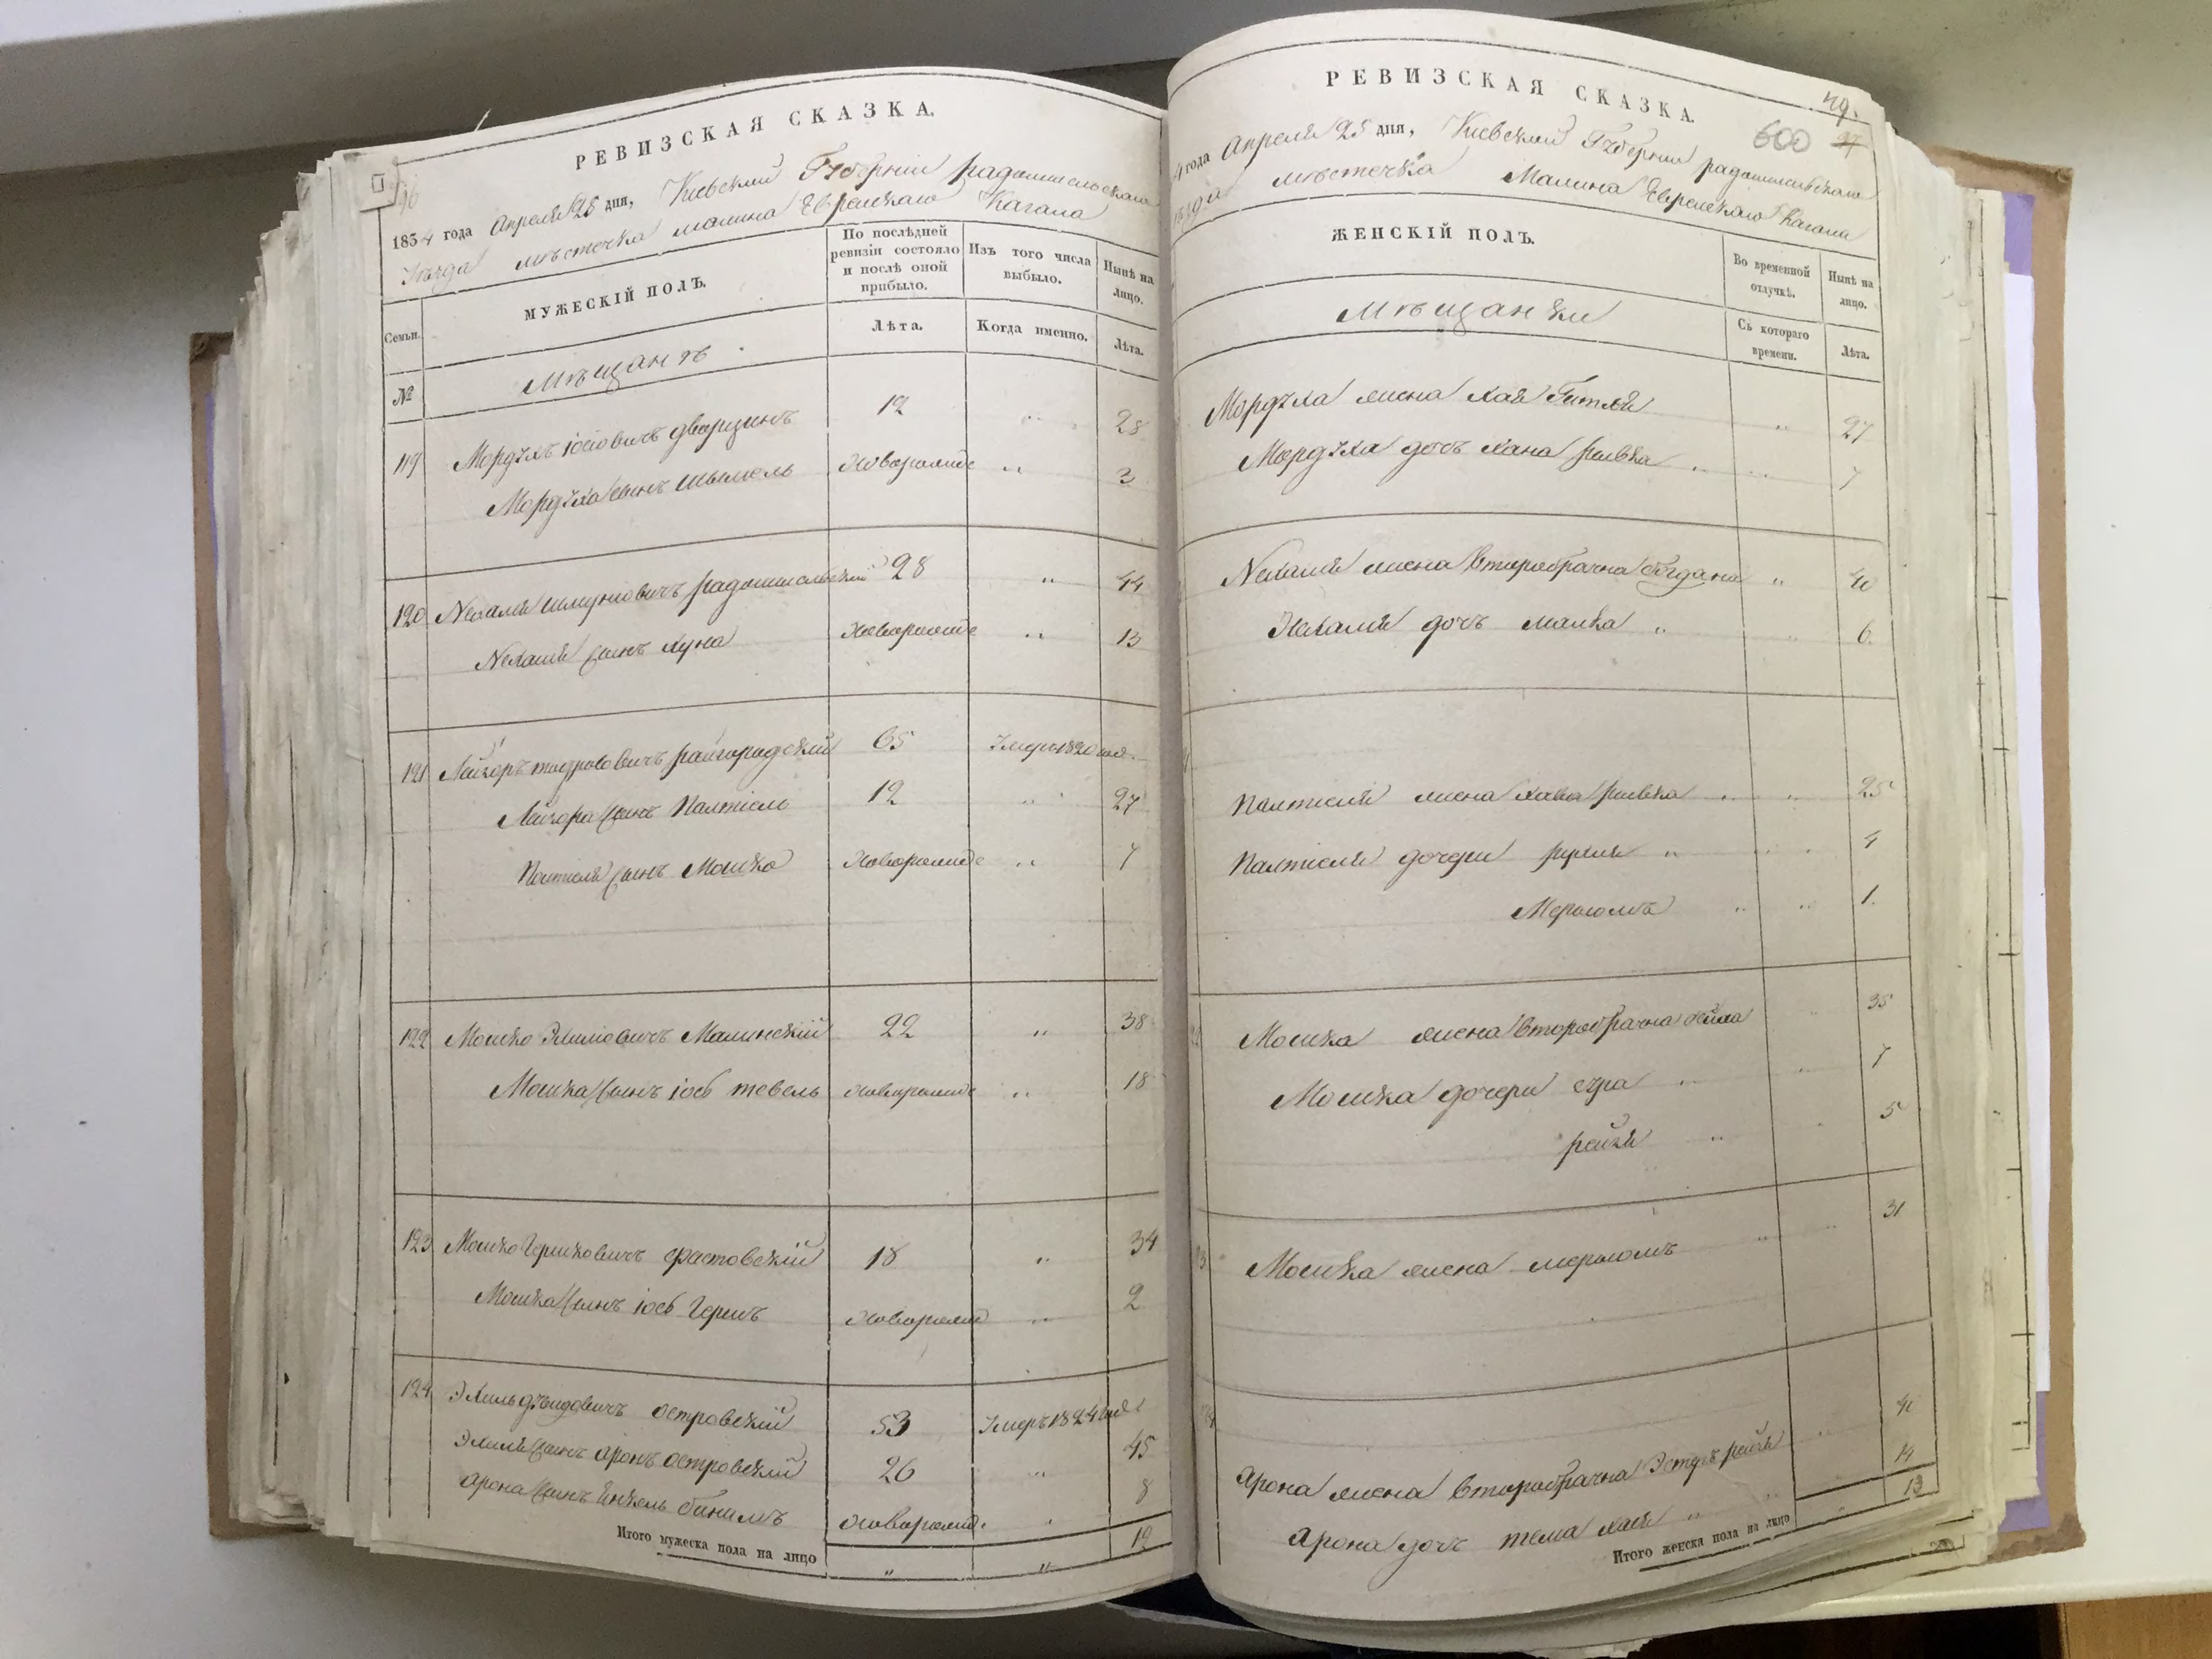 РЕВИЗСКАЯ СКАЗКА.
1834 года Апреля 25 дня, Киевской Губернии радомисльскаго
Уезда местечка малина Еврейскаго Кагала
Семьи.
МУЖЕСКІЙ ПОЛЪ.
По послѣдней ревизіи состояло и послѣ оной прибыло.
Изъ того числа выбыло.
Нынѣ на лицо.
Лѣта.
Когда именно.
Лѣта.
№
Мещанъ
119 Мордухъ іосіовичъ дворцинъ 12 " 28
Мордуха сынъ шмысль новорожде " 3
120 Нехамя шмуиовичъ радомисльский 28 " 44
Нехамя сынъ хуна новорожде " 13
121 Лейзоръ радгородский 65 Умеръ 1820 года
Лейзора сынъ Палтіель 12 " 27
Палтіеля сынъ Мошко новорожде " 7
122 Мошко Малинскій 22 " 38
Мошка сынъ іось тевель новорожде " 18
123 Мошко Гершковичъ фастовскій 18 " 34
Мошка сынъ іось Гершъ новорожд " 2
124 Эхиль островскій 53 Умеръ 1824 года
Эхиля сынъ аронъ островскій 26 " 45
арона сынъ Енкель бинимъ новорожд. " 8
Итого мужеска пола на лицо " " 12
РЕВИЗСКАЯ СКАЗКА.
49.
600
4 года Апреля 25 дня, Киевской Губернии радомисльскаго
местечка Малина Еврейскаго Кагала
ЖЕНСКІЙ ПОЛЪ.
Во временной отлучкѣ.
Нынѣ на лицо.
Съ котораго времени.
Лѣта.
Мещанки
Мордуха жена хая Гитля " 27
Мордуха дочъ хана ривка " 7
Нехамя жена второбрачна богдана " 40
Нехамя дочъ малка " " 6.
Палтіеля жена хава ривка " " 25
Палтіеля дочери " " 4
Мерьюмъ " " 1.
Мошка жена второбрачна " 35
Мошка дочери сура " " 7
рейзя " " 5
Мошка жена мерьюмъ " " 31
арона жена второбрачна Эстеръ рейзя " 40
арона дочъ тема хая " " 14
Итого женска пола на лицо " 13